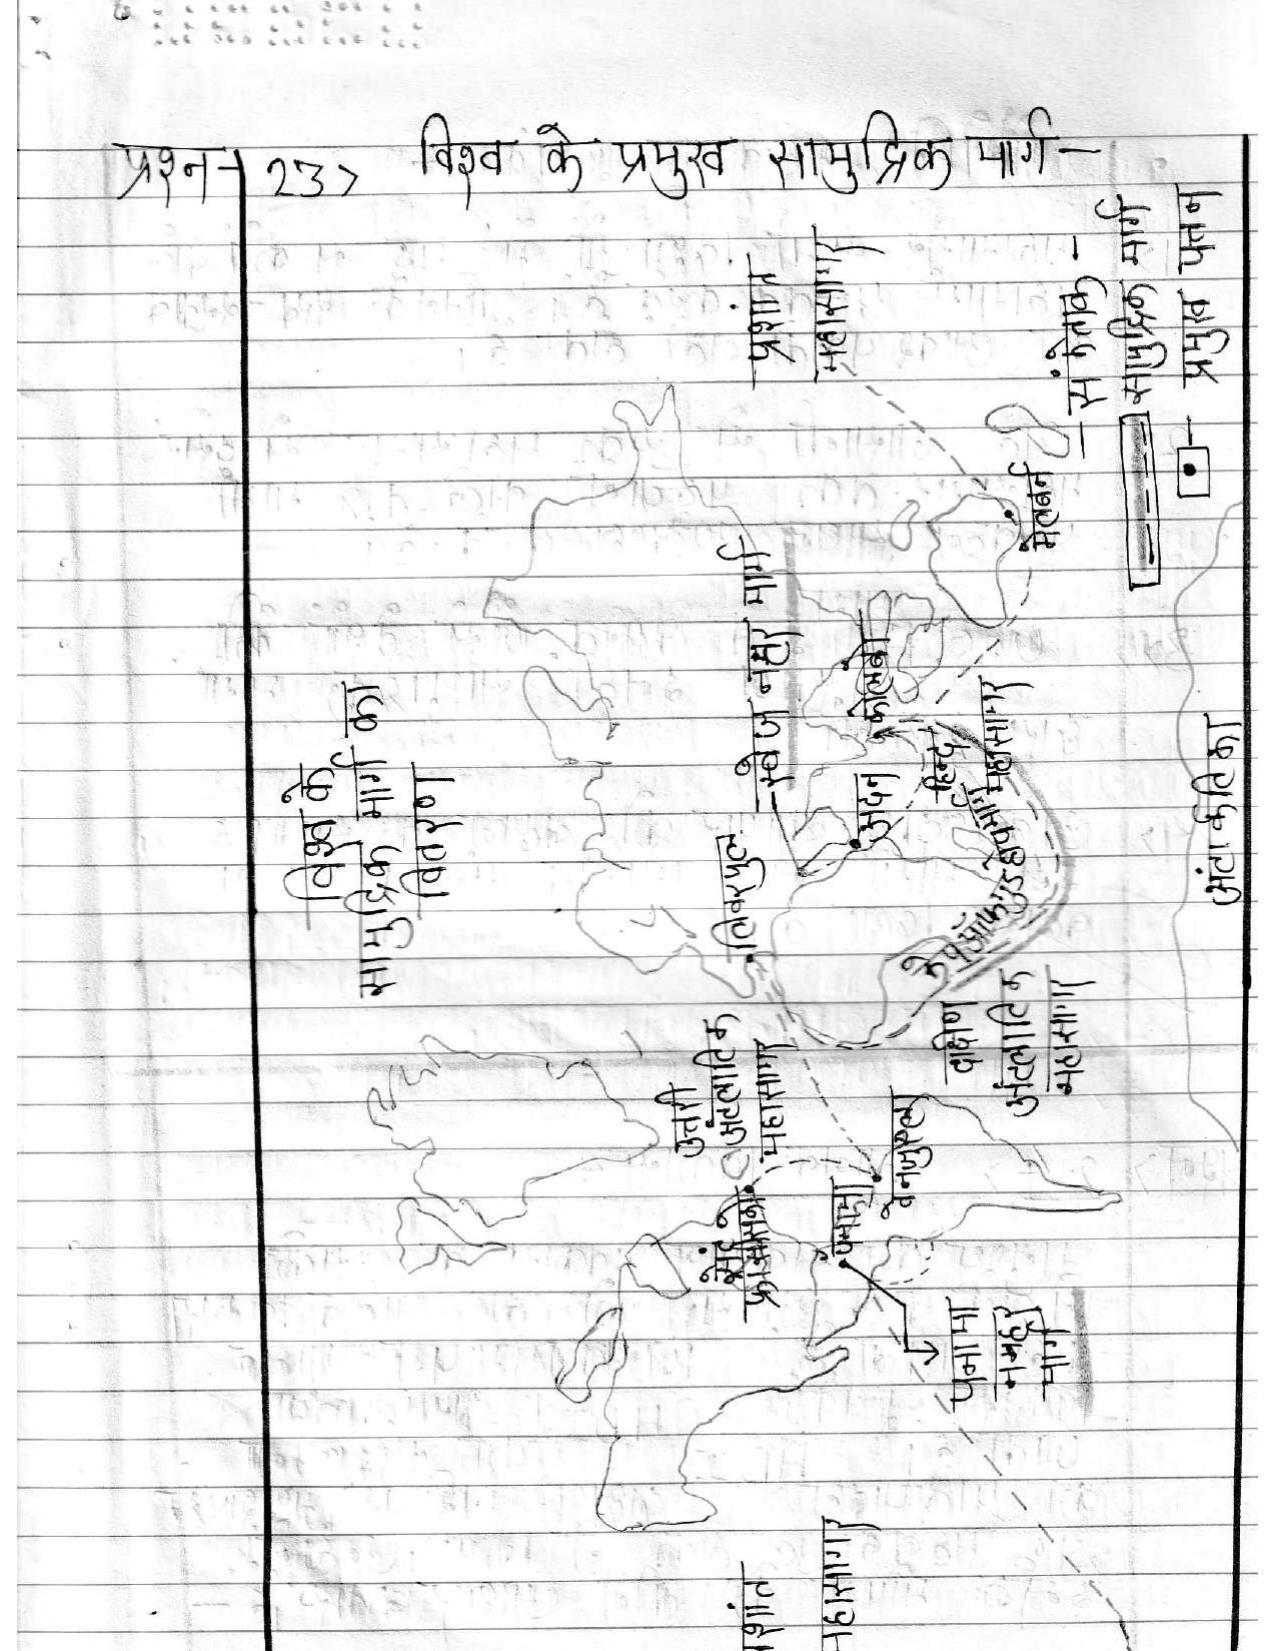 प्रश्न- 23> विश्व के प्रमुख सामुद्रिक मार्ग-
विश्व के
सामुद्रिक मार्ग का
वितरण
प्रशांत
महासागर
- संकेतांक -
सामुद्रिक मार्ग
प्रमुख पत्तन
मेलबर्न
स्वेज नहर मार्ग
कोलंबो
अदन
हिन्द
महासागर
लिवरपुल
केप ऑफ गुड होप मार्ग
अंटार्कटिका
उत्तरी
अटलांटिक
महासागर
दक्षिण
अंटलांटिक
महासागर
सेंट
पनामा
पनामा
नहर
मार्ग
प्रशांत
महासागर